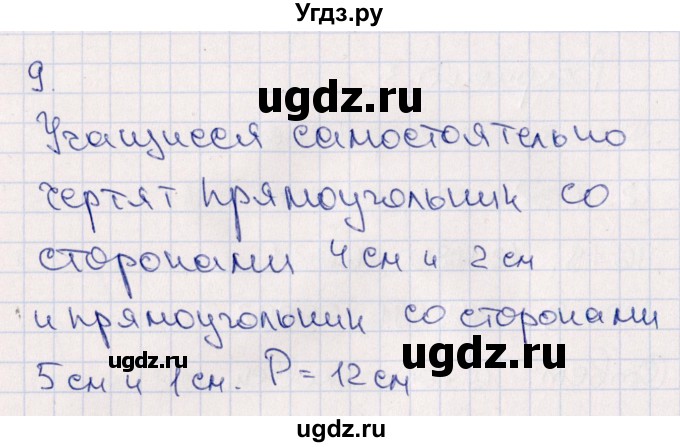 Угдз.ру
9.
ugdz.ru
Учащиеся самостоятельно
чертят прямоугольник со
ugdz.ru
сторонами 4 см и 2 см
и прямоугольник со сторонами
ugdz.ru ugdz.ru
5 см и 1 см. P = 12 см
ugdz.ru